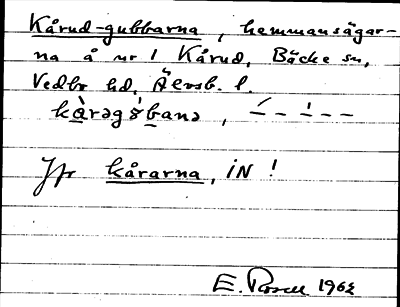 Kårud-gubbarna, hemmansägar-
na å nr 1 Kårud, Bäcke sn,
Vedbo hd, Älvsb. l.
kàrəgɞ̀banə, –́ – –̀ – –
Jfr kårarna, IN!
E. Rosell 1962